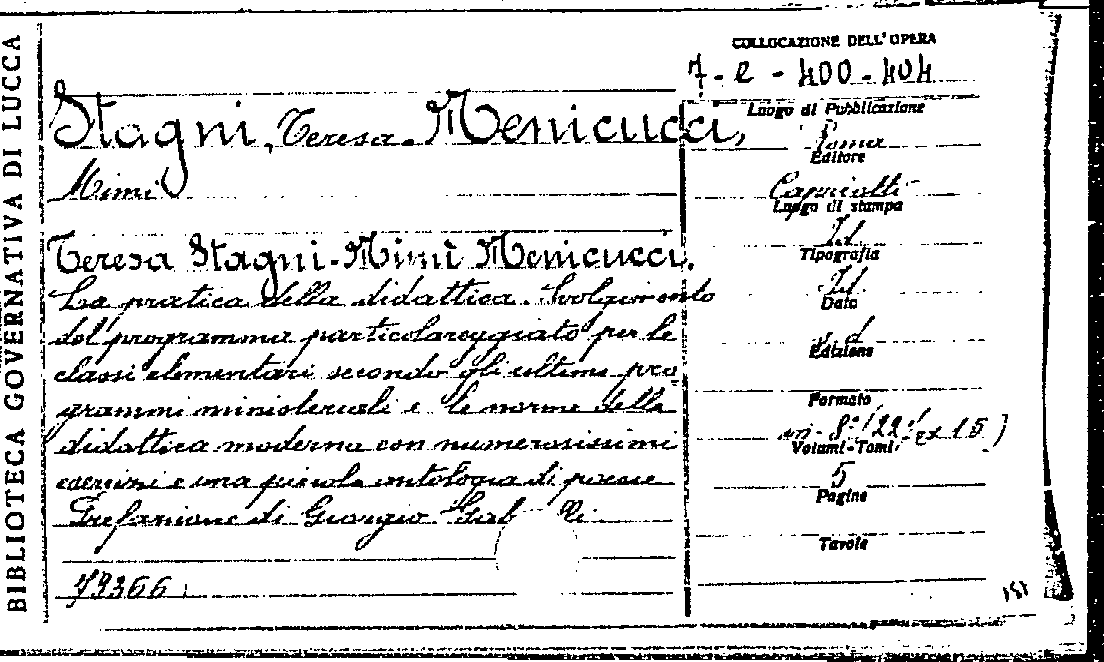 BIBLIOTECA GOVERNATIVA DI LUCCA
COLLOCAZIONE DELL'OPERA
7-e-400-404
Stagni, Teresa. Menicucci,
Mimì
Teresa Stagni-Mimì Menicucci.
La pratica della didattica. Svolgimento
del programma particolareggiato per le
classi elementari secondo gli ultimi pro
grammi ministeriali e le norme della
didattica moderna con numerosissimi
esercizi e una piccola antologia di poesie
Prefazione di Giorgio
79366
Luogo di Pubblicazione
Roma
Editore
Capriotti
Luogo di stampa
Id
Tipografia
Id
Data
s d
Edizione
Formato
in-8° (22 x 15)
Volumi-Tomi
5
Pagine
Tavole
151